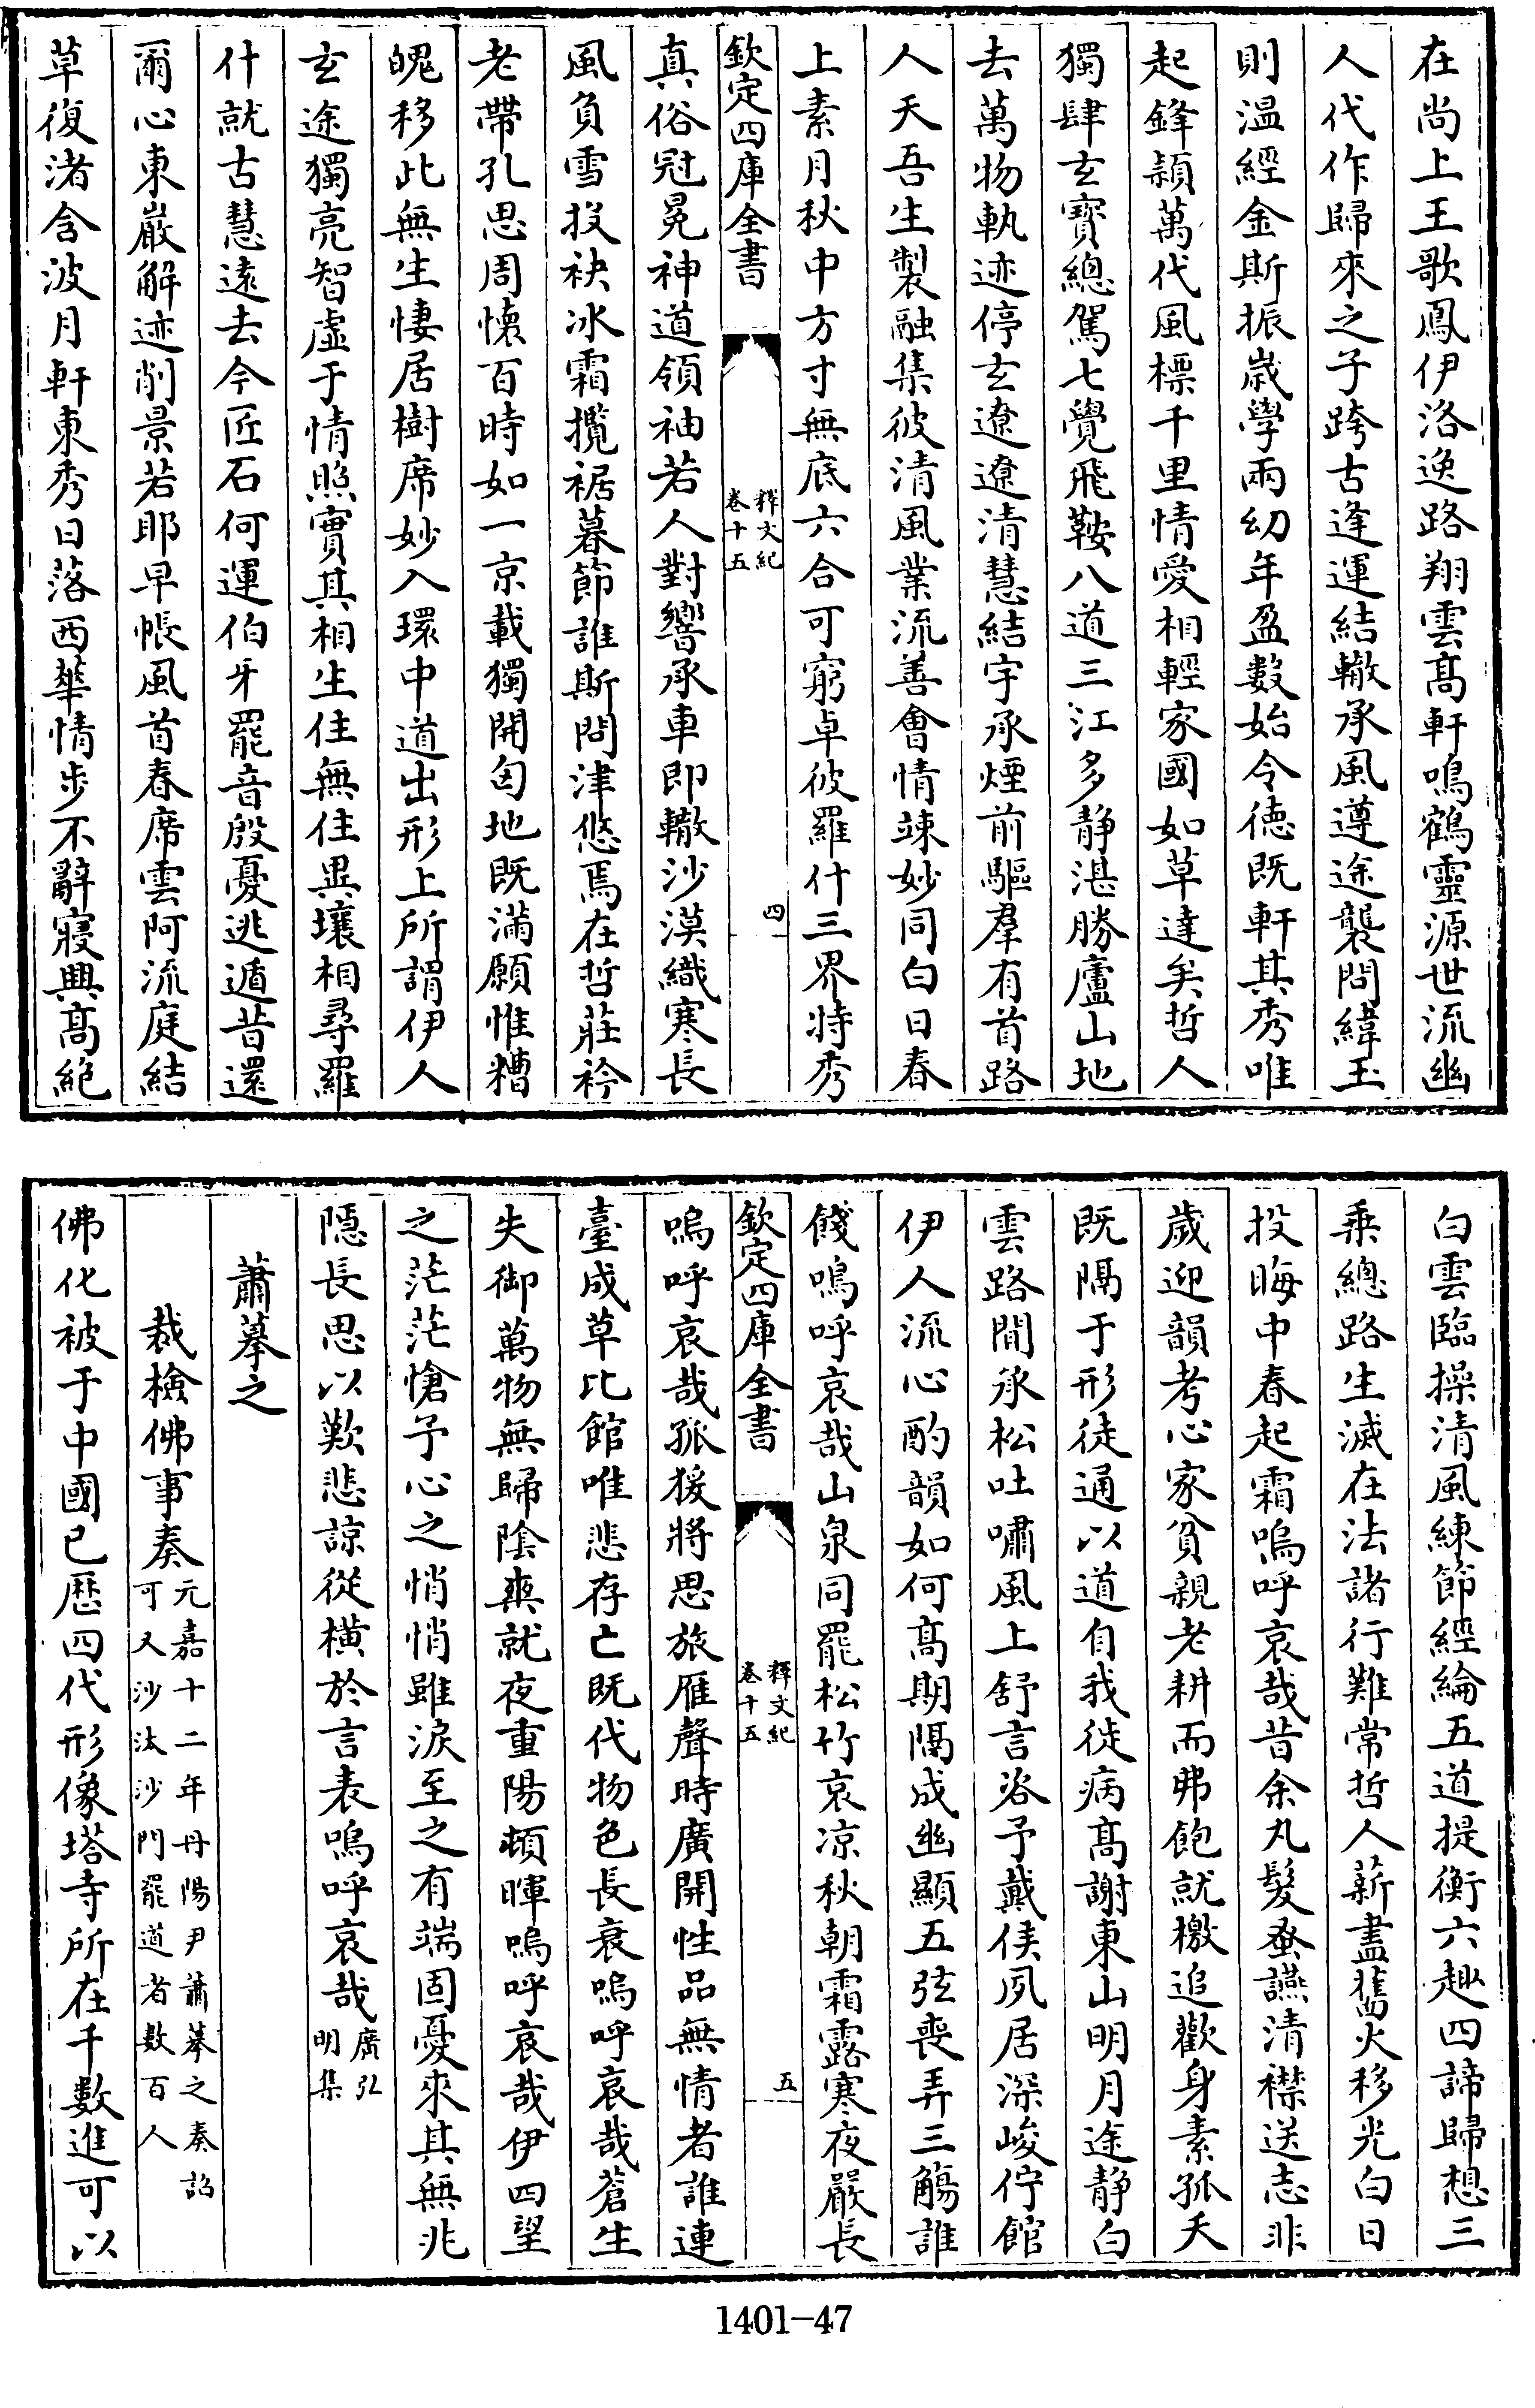 在尚上王歌鳳伊洛逸路翔雲髙軒鳴鶴靈源世流幽
人代作歸來之子跨古逢運結轍承風遵途襲問緯玉
則温經金斯振歲學兩幼年盈數始令徳既軒其秀唯
起鋒頴萬代風標千里情愛相輕家國如草達矣哲人
獨肆玄寳總駕七覺飛鞍八道三江多静湛勝廬山地
去萬物執迹停玄遼遼清慧結宇承煙前驅羣有首路
人天吾生製融集彼清風業流善會情竦妙同白日春
上素月秋中方寸無底六合可窮卓彼羅什三界特秀
欽定四庫全書
釋文紀
卷十五
四
真俗冠冕神道領袖若人對響承車即轍沙漠織寒長
風負雪投袂冰霜攬裾暮節誰斯問津悠焉在哲莊衿
老帶孔思周懷百時如一京載獨開匈地既滿願惟糟
魄移此無生悽居樹席妙入環中道出形上所謂伊人
玄途獨亮智虛于情照實其相生住無住異壤相尋羅
什就古慧遠去今匠石何運伯牙罷音殷憂逃遁昔還
爾心東巖解迹削景若耶早帳風首春席雲阿流庭結
草復渚含波月軒東秀日落西華情步不辭寢興髙絶
白雲臨操清風練節經綸五道提衡六趣四諦歸想三
乘總路生滅在法諸行難常哲人薪盡舊火移光白日
投晦中春起霜嗚呼哀哉昔余丸髮蚤讌清襟送志非
歲迎韻考心家貧親老耕而弗飽就檄追歡身素孤夭
既隔于形徒通以道自我徙病髙謝東山明月途静白
雲路閒承松吐嘯風上舒言咨予戴侯夙居深峻佇館
伊人流心酌韻如何髙期隔成幽顯五弦喪弄三觴誰
餞嗚呼哀哉山泉同罷松竹哀凉秋朝霜露寒夜嚴長
欽定四庫全書
釋文紀
卷十五
五
嗚呼哀哉孤猨將思旅雁聲時廣開性品無情者誰連
臺成草比館唯悲存亡既代物色長衰嗚呼哀哉蒼生
失御萬物無歸陰爽就夜重陽頓暉嗚呼哀哉伊四望
之茫茫愴予心之悄悄雖淚至之有端固憂來其無兆
隠長思以歎悲諒從橫於言表嗚呼哀哉廣弘明集
蕭摹之
裁檢佛事奏元嘉十二年丹陽尹蕭摹之奏詔可又沙汰沙門罷道者數百人
佛化被于中國已歴四代形像塔寺所在千數進可以
1401-47